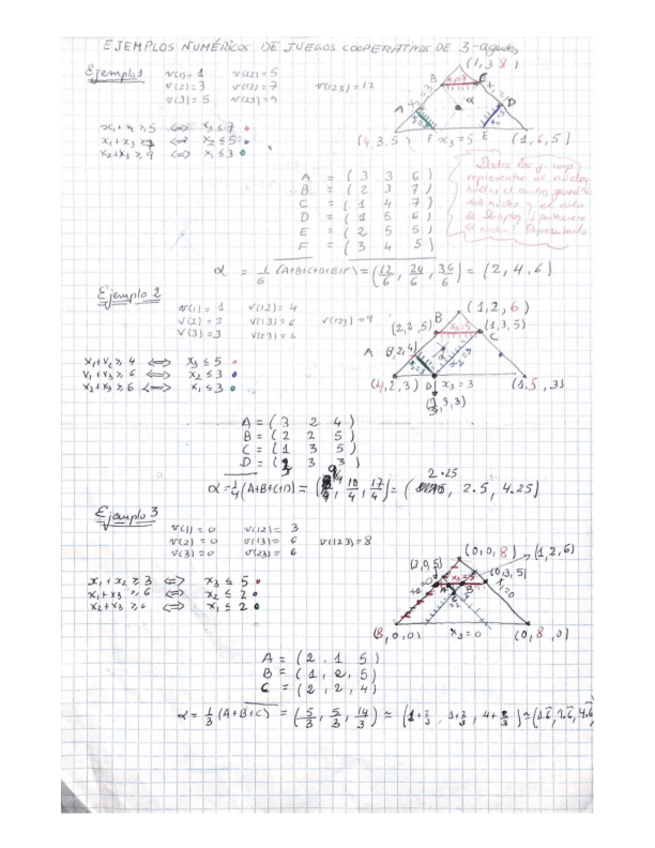 EJEMPLOS NUMÉRICOS DE JUEGOS COOPERATIVOS DE 3-agentes
Ejemplo 1
v(1)= 1 v(12)=5
v(2)=3 v(13)=7 v(123)=12
v(3)=5 v(23)=9
x₁+x₂ ≥ 5 <=> x₃ ≤ 7
x₁+x₃ ≥ 7 <=> x₂ ≤ 5
x₂+x₃ ≥ 9 <=> x₁ ≤ 3
(1,3,8)
B C
A D
α
(4,3,5) F x₃=5 E (1,6,5)
A = (3 3 6)
B = (2 3 7)
C = (1 4 7)
D = (1 5 6)
E = (2 5 5)
F = (3 4 5)
Dados los j. coop
representar el núcleo,
hallar el centro
del núcleo y el valor
de Shapley
al núcleo. Representarlo
α = 1/6 (A+B+C+D+E+F) = (12/6, 24/6, 36/6) = (2, 4, 6)
Ejemplo 2
v(1) = 1 v(12)= 4
v(2) = 2 v(13)= 6 v(123) = 9
v(3) = 3 v(23)= 6
x₁+x₂ ≥ 4 <=> x₃ ≤ 5
x₁+x₃ ≥ 6 <=> x₂ ≤ 3
x₂+x₃ ≥ 6 <=> x₁ ≤ 3
(1,2,6)
B
(2,2,5) x₃=5 (1,3,5)
C
A (3,2,4) α
(4,2,3) D x₃=3 (1,5,3)
(3,3,3)
A = (3 2 4)
B = (2 2 5)
C = (1 3 5)
D = (3 3 3)
α = 1/4 (A+B+C+D) = (9/4, 10/4, 17/4) = (2.25, 2.5, 4.25)
Ejemplo 3
v(1) = 0 v(12)= 3
v(2) = 0 v(13)= 6 v(123)=8
v(3) = 0 v(23)= 6
x₁+x₂ ≥ 3 <=> x₃ ≤ 5
x₁+x₃ ≥ 6 <=> x₂ ≤ 2
x₂+x₃ ≥ 6 <=> x₁ ≤ 2
(0,0,8) (1,2,6)
(3,0,5) (0,3,5)
x₂=0 A x₃=5 B x₁=0
C
(8,0,0) x₃=0 (0,8,0)
A = (2, 1 5)
B = (1, 2, 5)
C = (2, 2, 4)
α = 1/3 (A+B+C) = (5/3, 5/3, 14/3) ≃ (1+2/3, 1+2/3, 4+2/3) ≃ (1.6, 1.6, 4.6)